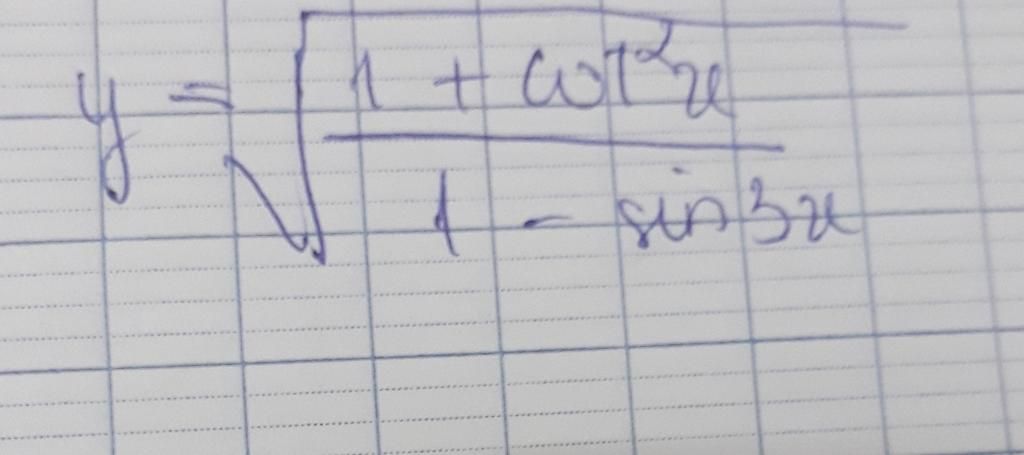 y = √((1 + cot²x)/(1 - sin3x))